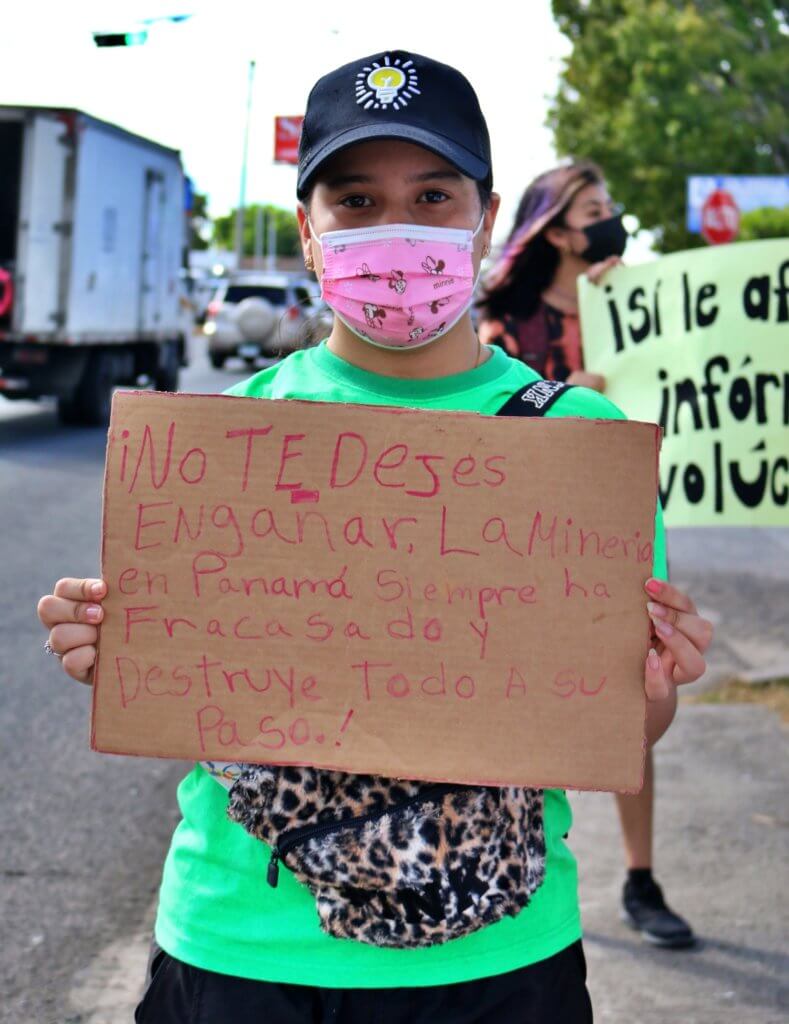 ¡No TE Dejes
Engañar. La Mineria
en Panamá Siempre ha
Fracasado y
Destruye Todo A su
Paso.!
¡Sí le af
infór
volúc
minnie
PINK